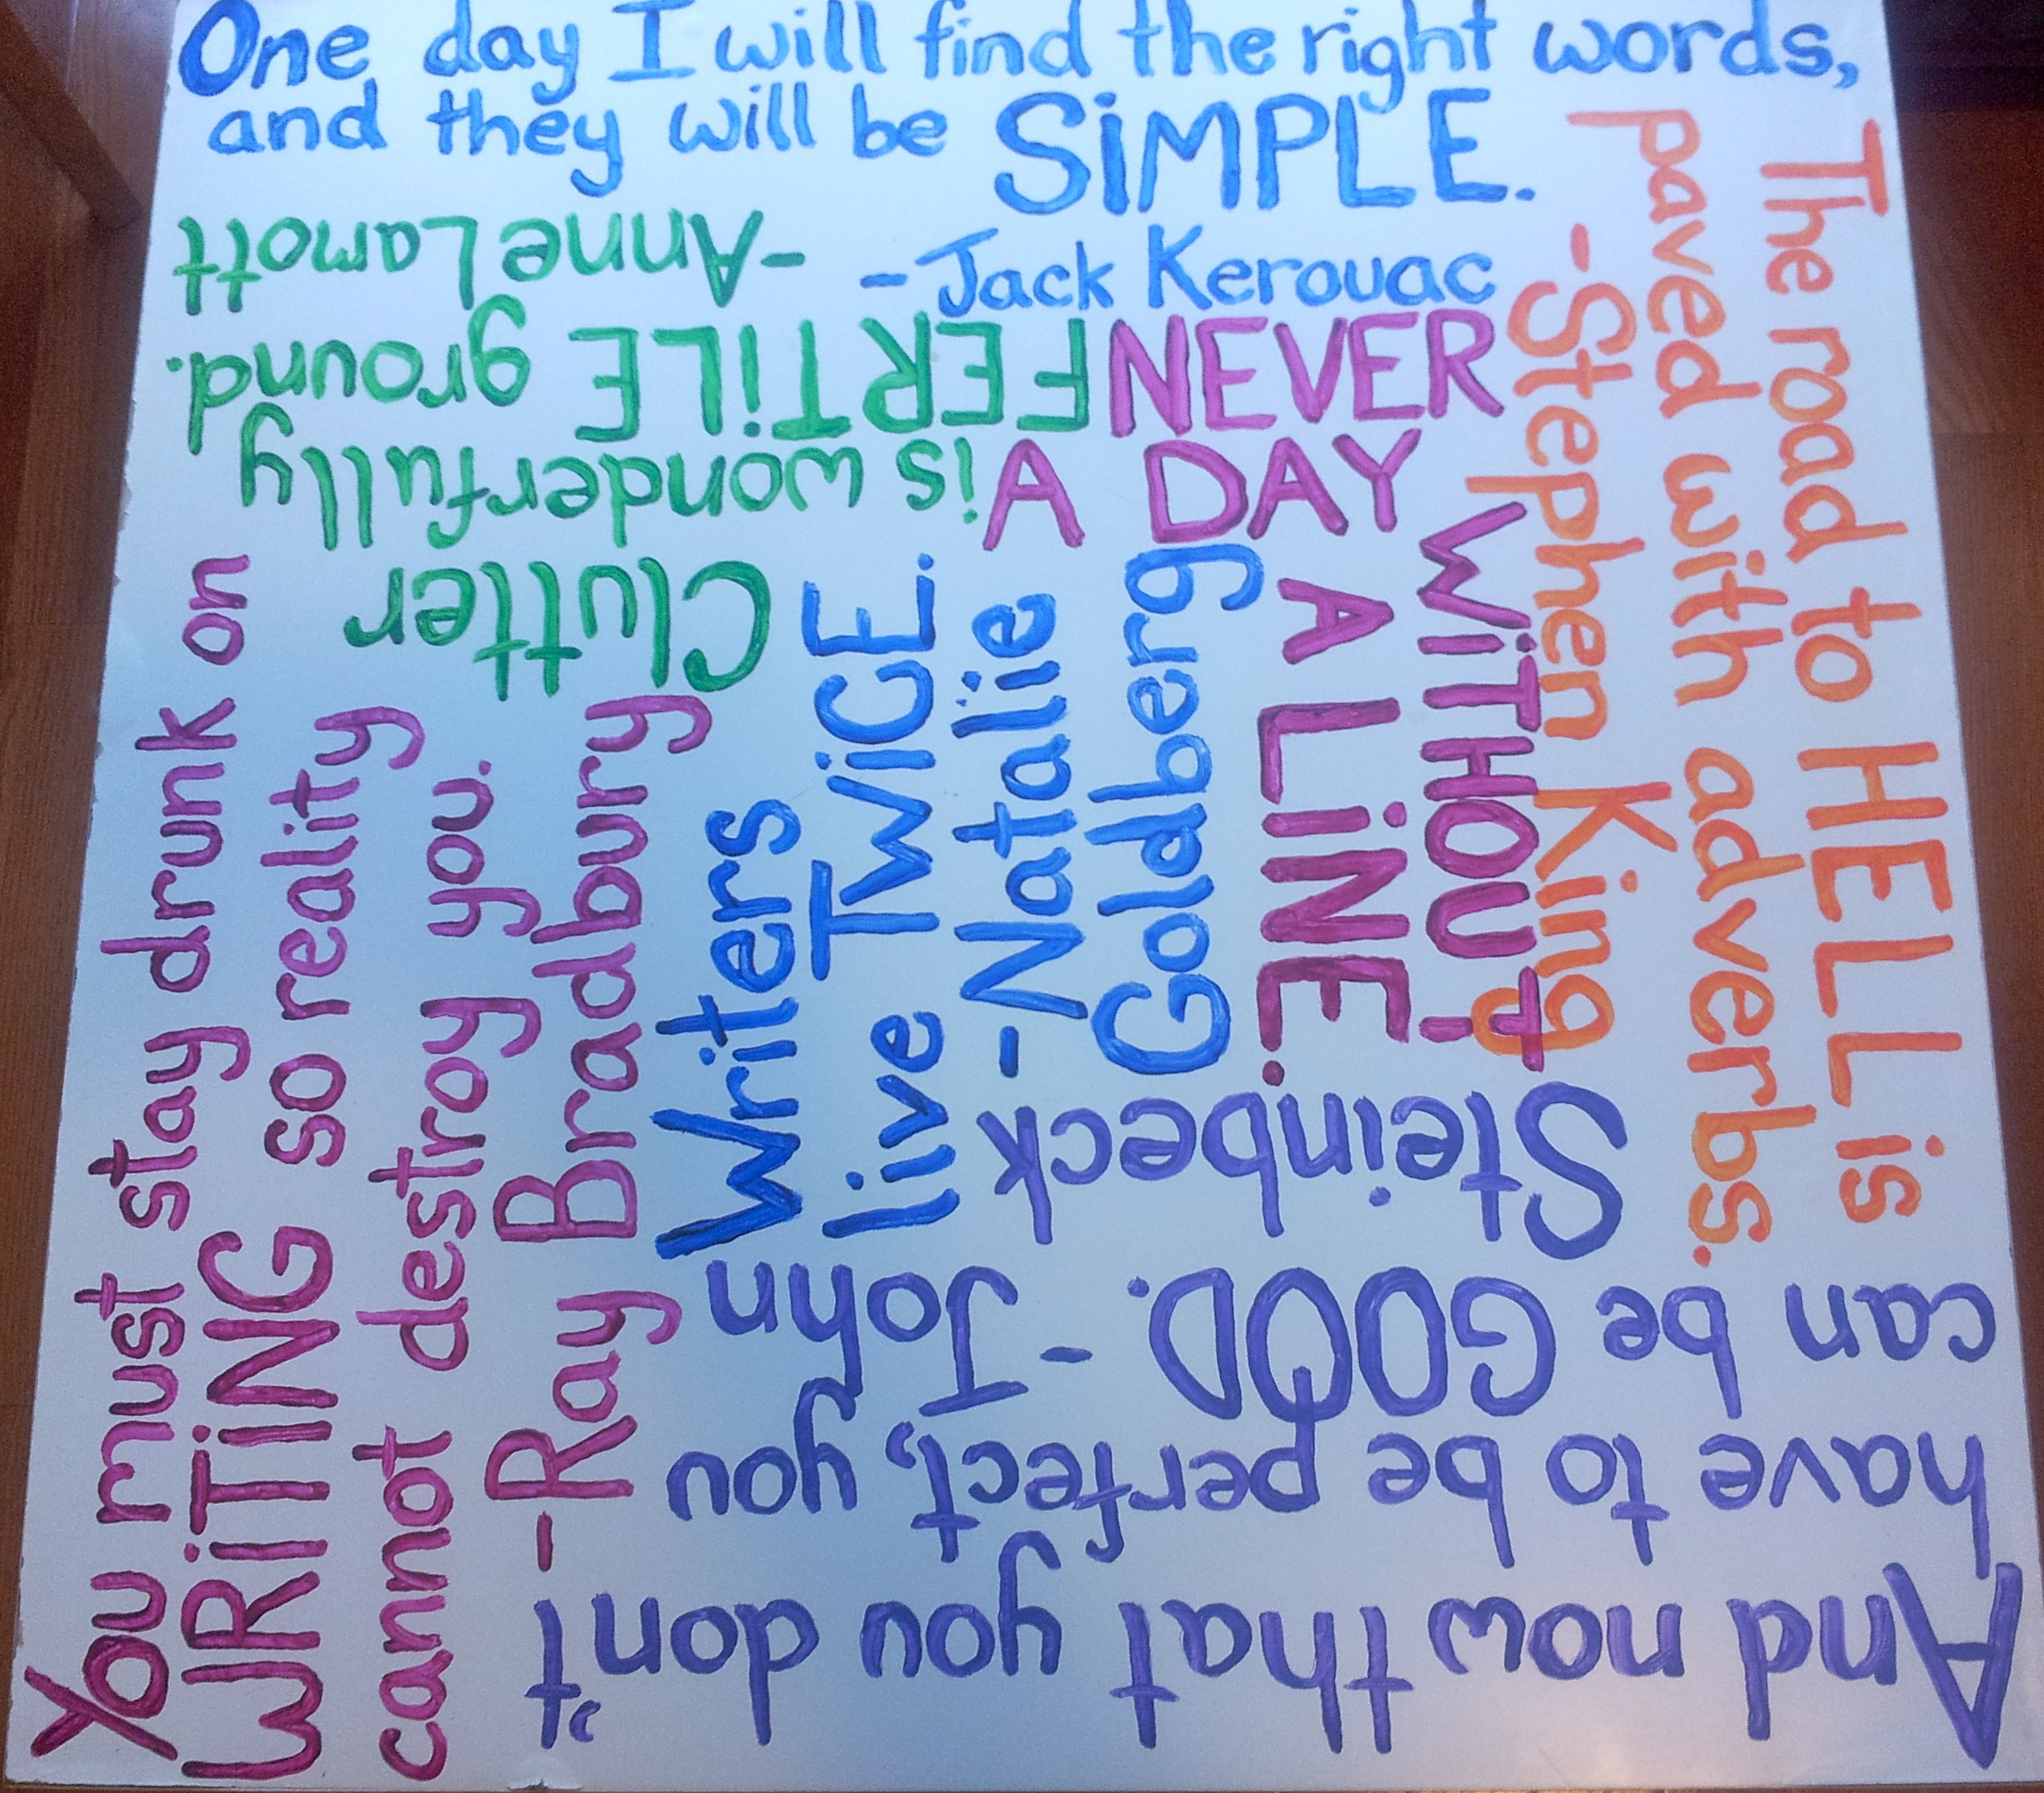 One day I will find the right words,
and they will be SiMPLE.
- Jack Kerouac
The road to HELL is
paved with adverbs.
- Stephen King
And now that you don't
have to be perfect, you
can be GOOD. - John
Steinbeck
You must stay drunk on
WRiTiNG so reality
cannot destroy you.
- Ray Bradbury
Clutter
is wonderfully
FERTiLE ground.
- Anne Lamott
NEVER
A DAY
WiTHOUT
A LiNE.
Writers
live TWiCE.
- Natalie
Goldberg